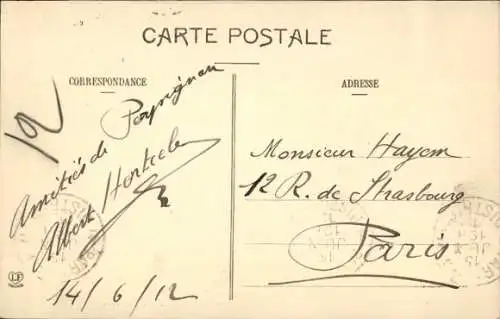 CARTE POSTALE
CORRESPONDANCE
ADRESSE
12
Amitiés de Perpignan
Albert
14/6/12
Monsieur Hayem
12 R. de Strasbourg
Paris